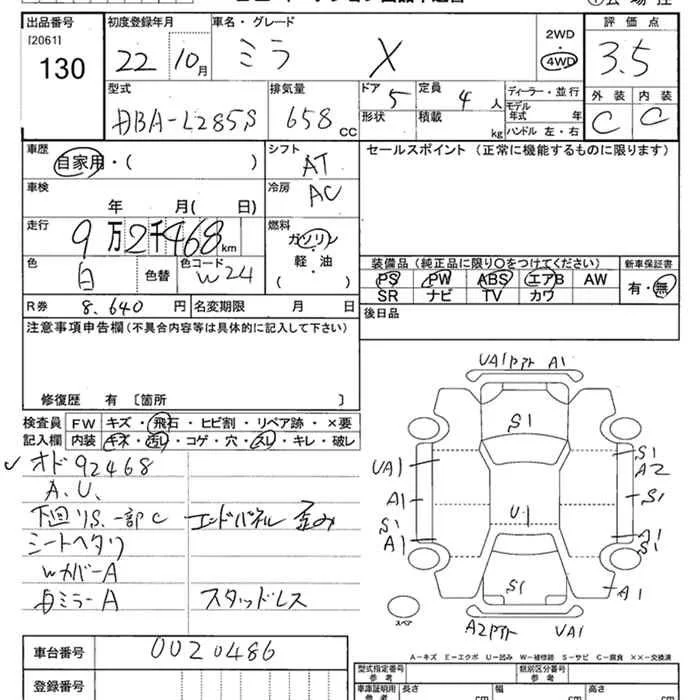 出品番号 初度登録年月 車名・グレード 2WD・4WD 評価点
[2061] 130 22 10月 ミラ X 3.5
型式 排気量 ドア 5 定員 4人 ディーラー・並行 外装 内装
DBA-L285S 658cc 形状 積載 kg モデル年式 年 C C
ハンドル 左・右
車歴 自家用・( ) シフト AT セールスポイント(正常に機能するものに限ります)
車検 年 月( 日) 冷房 AC
走行 9万2千468km 燃料 ガソリン・軽・油( )
色 白 色替 色コード W24 装備品(純正品に限り○をつけてください) 新車保証書
PS PW ABS エアB AW 有・無
SR ナビ TV カワ
R券 8,640円 名変期限 月 日 後日品
注意事項申告欄(不具合内容等は具体的に記入して下さい)
修復歴 有〔箇所 〕
検査員記入欄 FW キズ・飛石・ヒビ割・リペア跡・×要
内装 キズ・汚レ・コゲ・穴・スレ・キレ・破レ
✓オド92468
A.U.
下回りS.一部C エンドパネル歪み
シートヘタリ
WカバーA
ミラーA スタッドレス
A1
S1
UA1
S1
A2
A1
S1
U1
S1
A1
A1
S1
S1
A1
スペア
UA1
A-キズ E-エクボ U-凹み W-補修跡 S-サビ C-腐食 ××-交換済
車台番号 0020486
登録番号
型式指定番号 参考 類別区分番号 参考
車庫証明用 参考 長さ cm 幅 cm 高さ cm